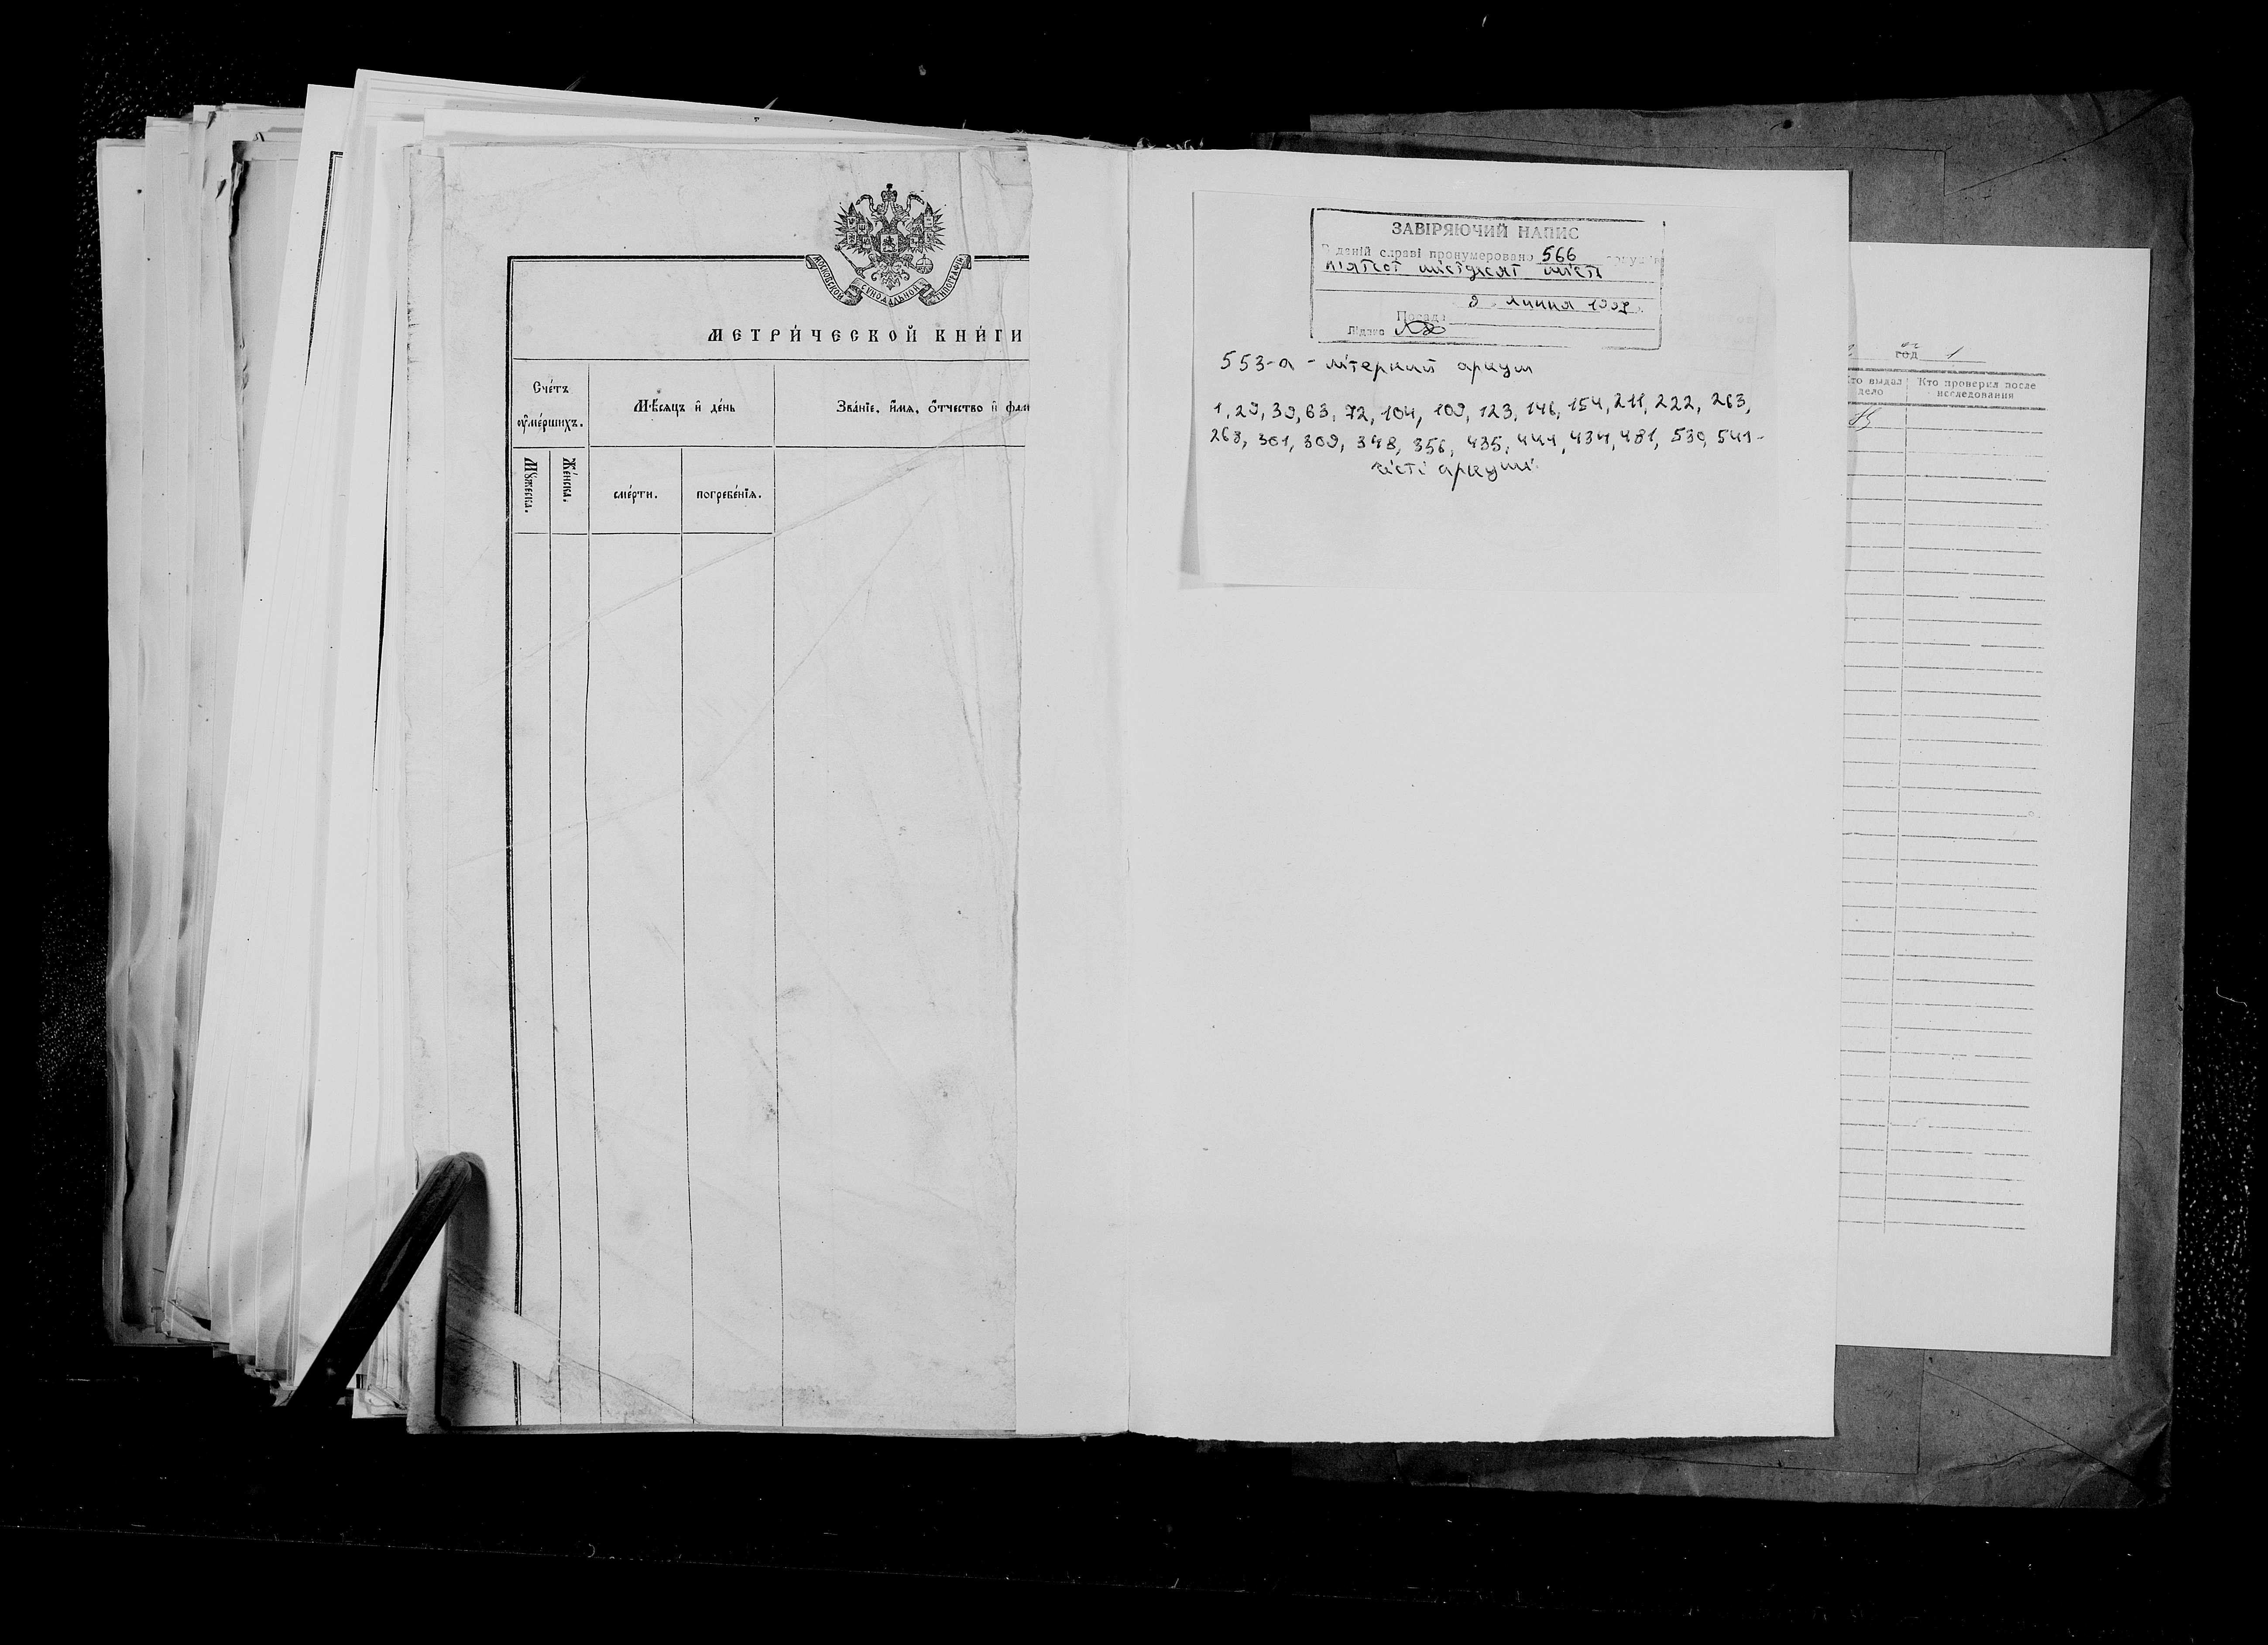 МОСКОВСКОЙ СѴНОДАЛЬНОЙ ТИПОГРАФІИ
МЕТРИ́ЧЕСКОЙ КНИ́ГИ
Сче́тъ
ᲂу҆ме́ршихъ.
Мꙋ́жеска.
Же́нска.
Мѣ́сяцъ и҆ де́нь
сме́рти.
погребе́нїѧ.
Зва́нїе, и҆́мѧ, ѻ҆́тчество и҆
ЗАВІРЯЮЧИЙ НАПИС
даній справі пронумеровано 566
п'ятсот шістдесят шість
9 липня
Посада
Підпис
553-а - літерний аркуш
1, 29, 39, 63, 72, 104, 109, 123, 146, 154, 211, 222, 263,
268, 301, 309, 348, 356, 435, 444, 434, 481, 530, 541 -
чисті аркуші
год 1
Кто выдал дело
Кто проверил после исследования